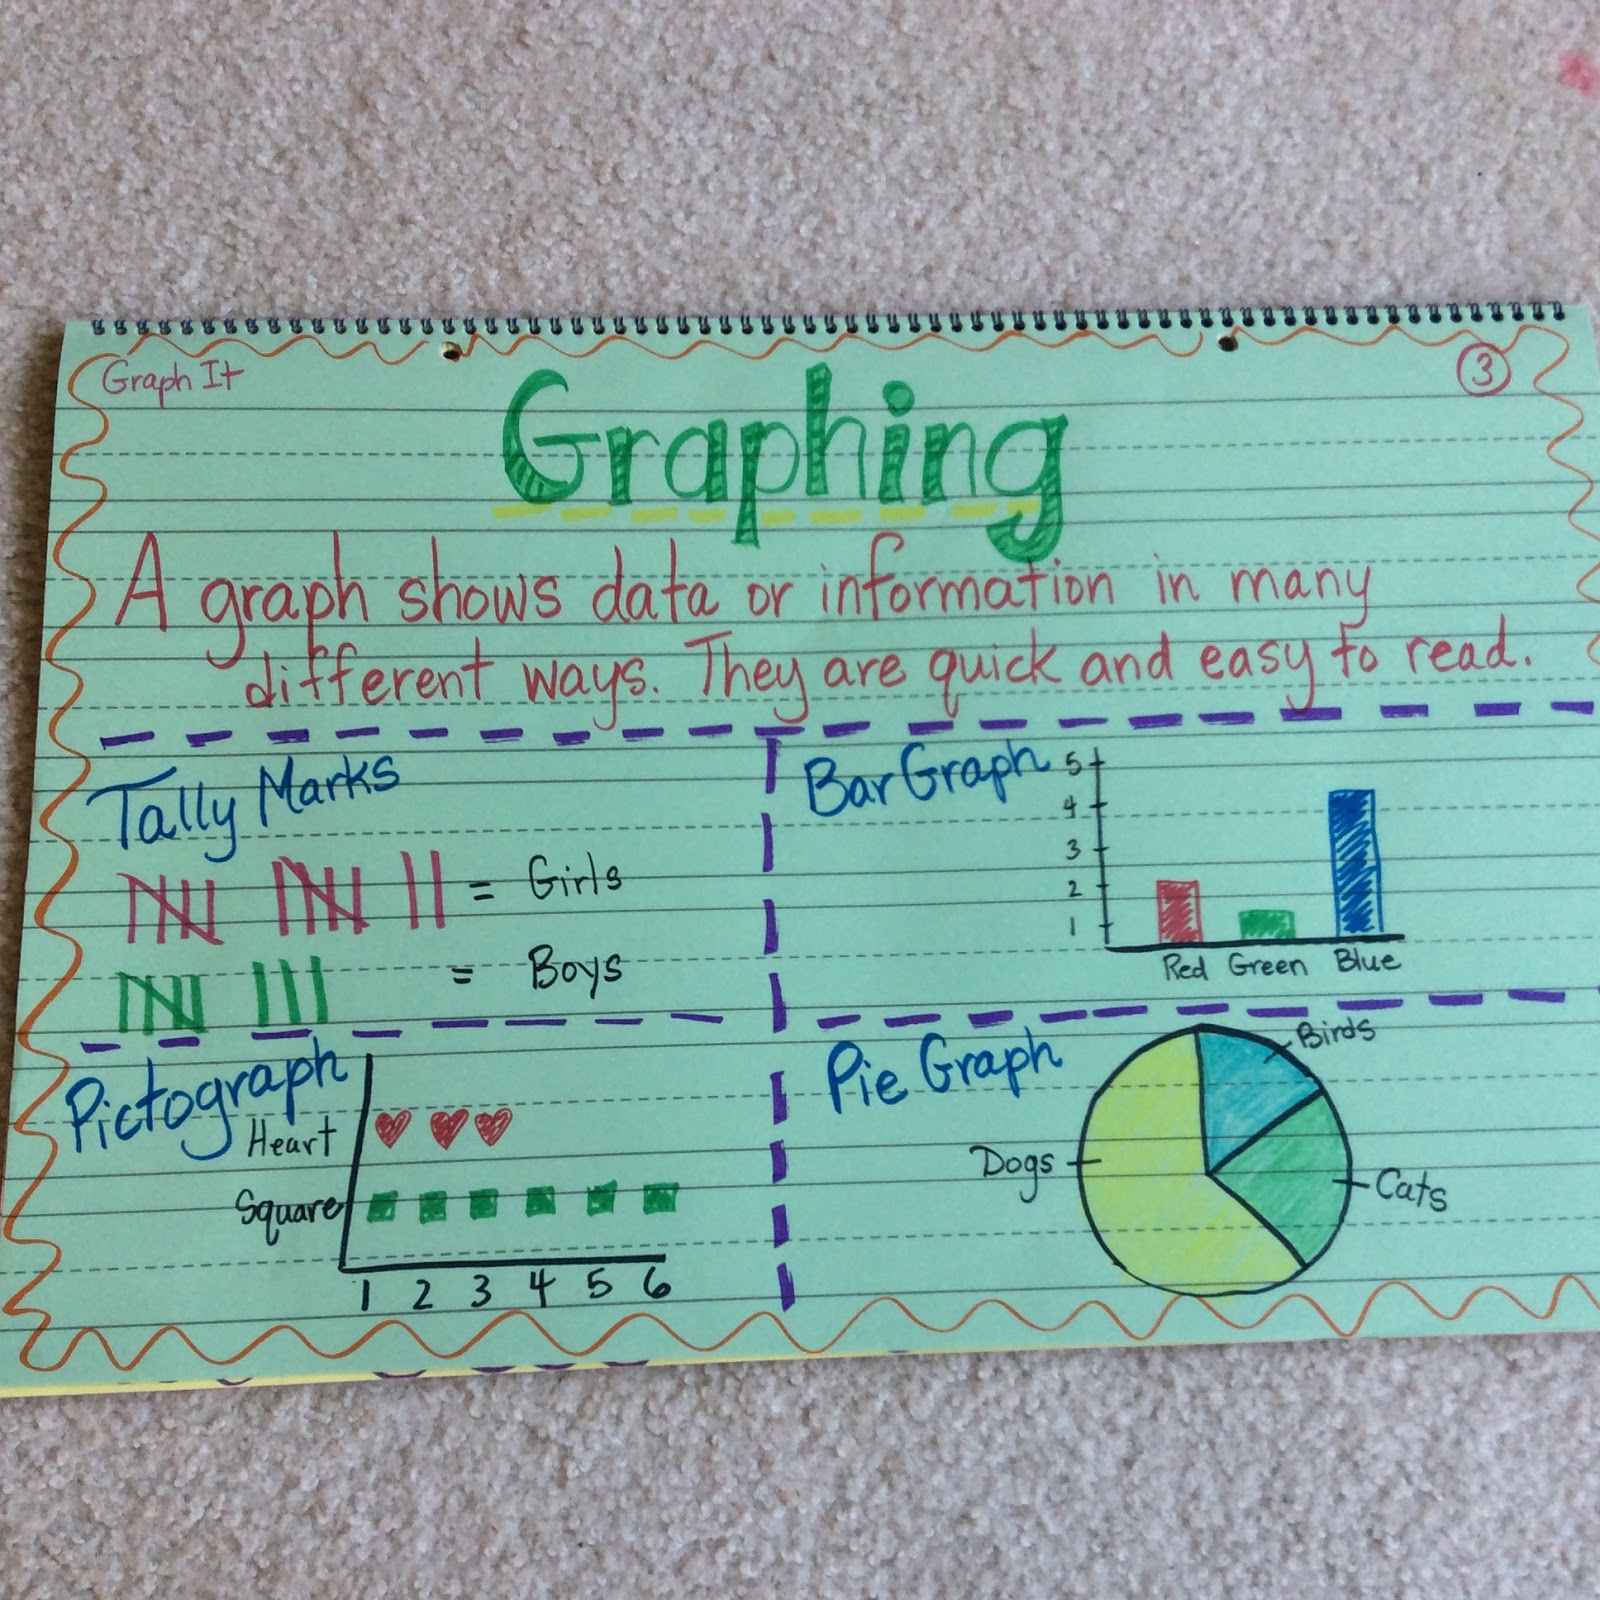 Graph It
3
Graphing
A graph shows data or information in many
different ways. They are quick and easy to read.
Tally Marks
= Girls
= Boys
Bar Graph
5
4
3
2
1
Red Green Blue
Pictograph
Heart
Square
1 2 3 4 5 6
Pie Graph
Birds
Dogs
Cats